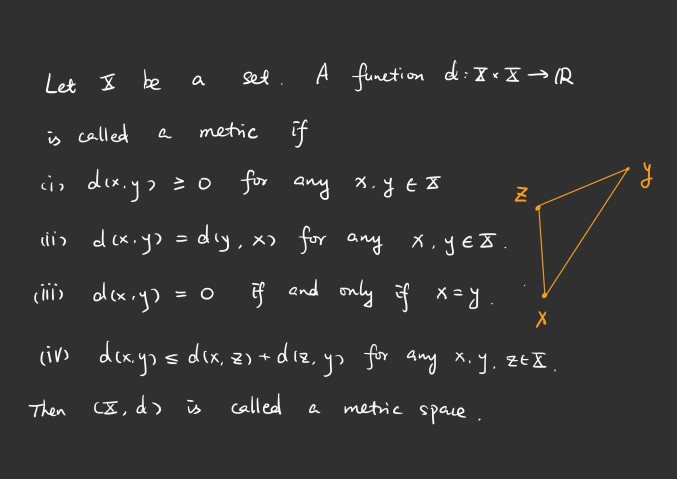 Let X be a set. A function d: X × X → ℝ
is called a metric if
(i) d(x, y) ≥ 0 for any x, y ∈ X
(ii) d(x, y) = d(y, x) for any x, y ∈ X.
(iii) d(x, y) = 0 if and only if x = y.
(iv) d(x, y) ≤ d(x, z) + d(z, y) for any x, y, z ∈ X.
Then (X, d) is called a metric space.
y
z
x